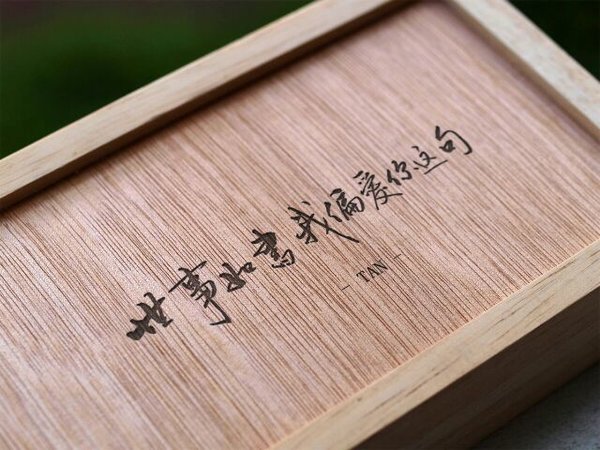 世事如書我偏愛你这句
- TAN -